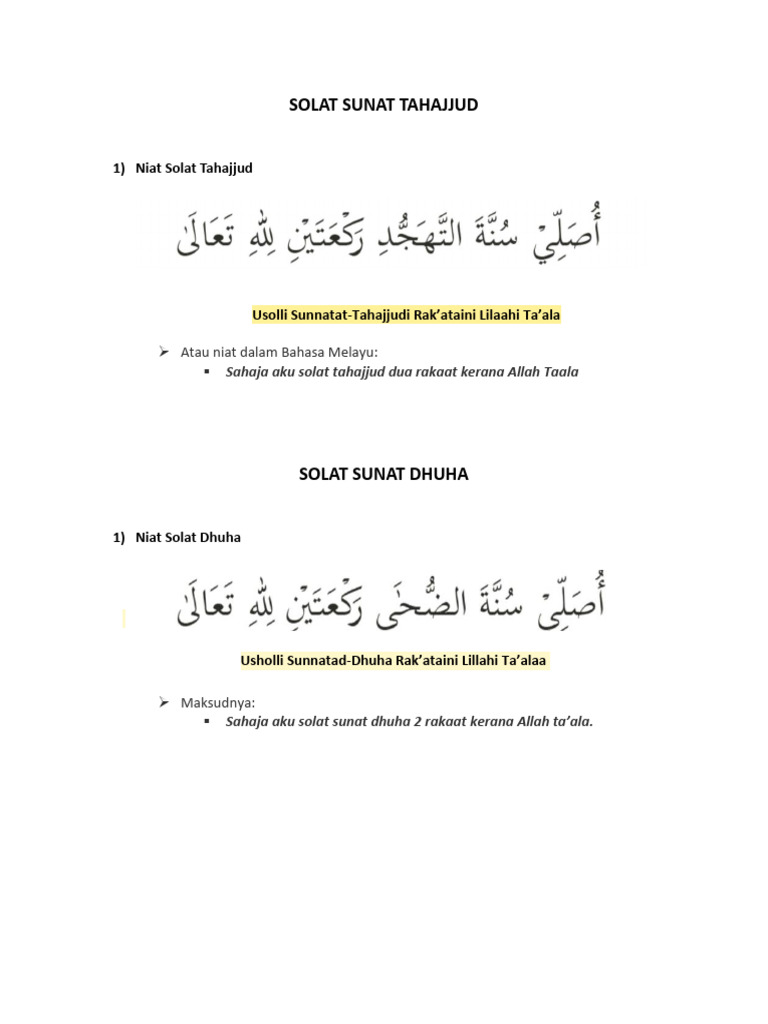 SOLAT SUNAT TAHAJJUD
1) Niat Solat Tahajjud
أُصَلِّيْ سُنَّةَ التَّهَجُّدِ رَكْعَتَيْنِ لِلّٰهِ تَعَالَىٰ
Usolli Sunnatat-Tahajjudi Rak’ataini Lilaahi Ta’ala
➢ Atau niat dalam Bahasa Melayu:
▪ Sahaja aku solat tahajjud dua rakaat kerana Allah Taala
SOLAT SUNAT DHUHA
1) Niat Solat Dhuha
أُصَلِّيْ سُنَّةَ الضُّحَٰى رَكْعَتَيْنِ لِلّٰهِ تَعَالَىٰ
Usholli Sunnatad-Dhuha Rak’ataini Lillahi Ta’alaa
➢ Maksudnya:
▪ Sahaja aku solat sunat dhuha 2 rakaat kerana Allah ta’ala.